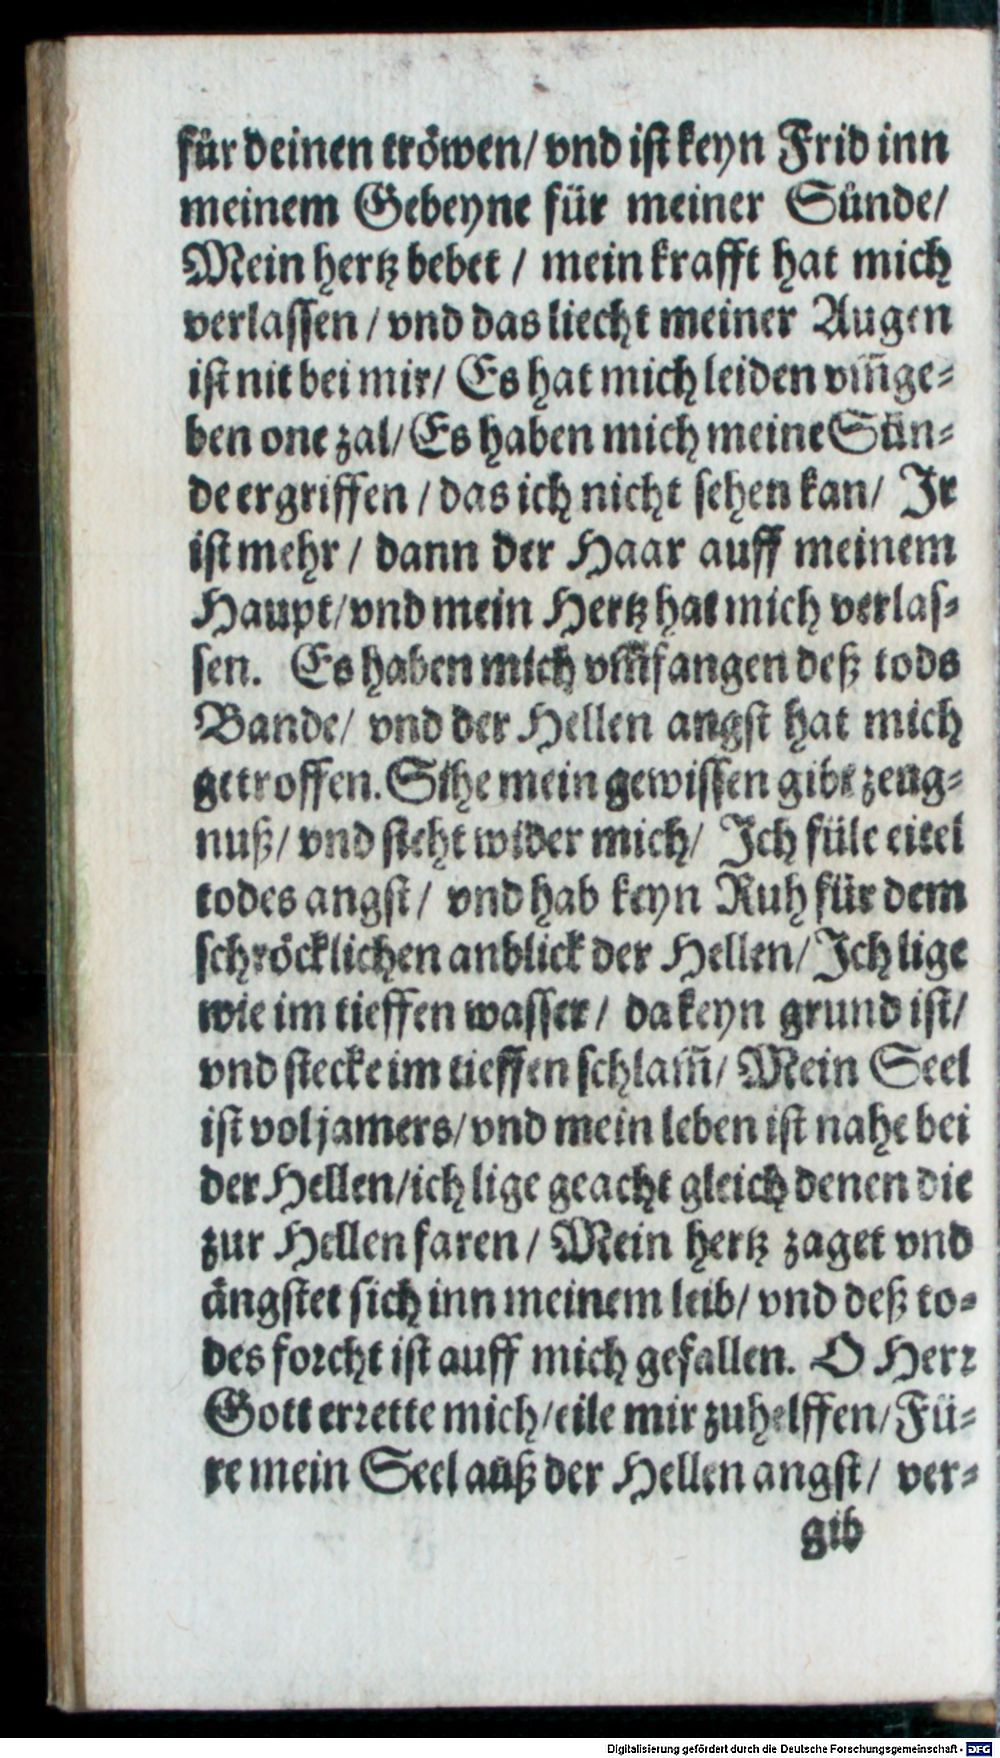 für deinen tröwen/ vnd ist keyn Frid inn
meinem Gebeyne für meiner Sünde/
Mein hertz bebet / mein krafft hat mich
verlassen / vnd das liecht meiner Augen
ist nit bei mir/ Es hat mich leiden vm̃ge⸗
ben one zal/ Es haben mich meine Sün⸗
de ergriffen / das ich nicht sehen kan/ Jr
ist mehr / dann der Haar auff meinem
Haupt/ vnd mein Hertz hat mich verlas⸗
sen. Es haben mich vm̃fangen deß tods
Bande/ vnd der Hellen angst hat mich
getroffen. Sihe mein gewissen gibt zeug⸗
nuß/ vnd steht wider mich/ Jch füle eitel
todes angst/ vnd hab keyn Ruh für dem
schröcklichen anblick der Hellen/ Jch lige
wie im tieffen wasser/ da keyn grund ist/
vnd stecke im tieffen schlam̃/ Mein Seel
ist vol jamers/ vnd mein leben ist nahe bei
der Hellen/ ich lige geacht gleich denen die
zur Hellen faren / Mein hertz zaget vnd
ängstet sich inn meinem leib/ vnd deß to⸗
des forcht ist auff mich gefallen. O Herr
Gott errette mich/ eile mir zuhelffen/ Fü⸗
re mein Seel auß der Hellen angst/ ver⸗
gib
Digitalisierung gefördert durch die Deutsche Forschungsgemeinschaft - DFG